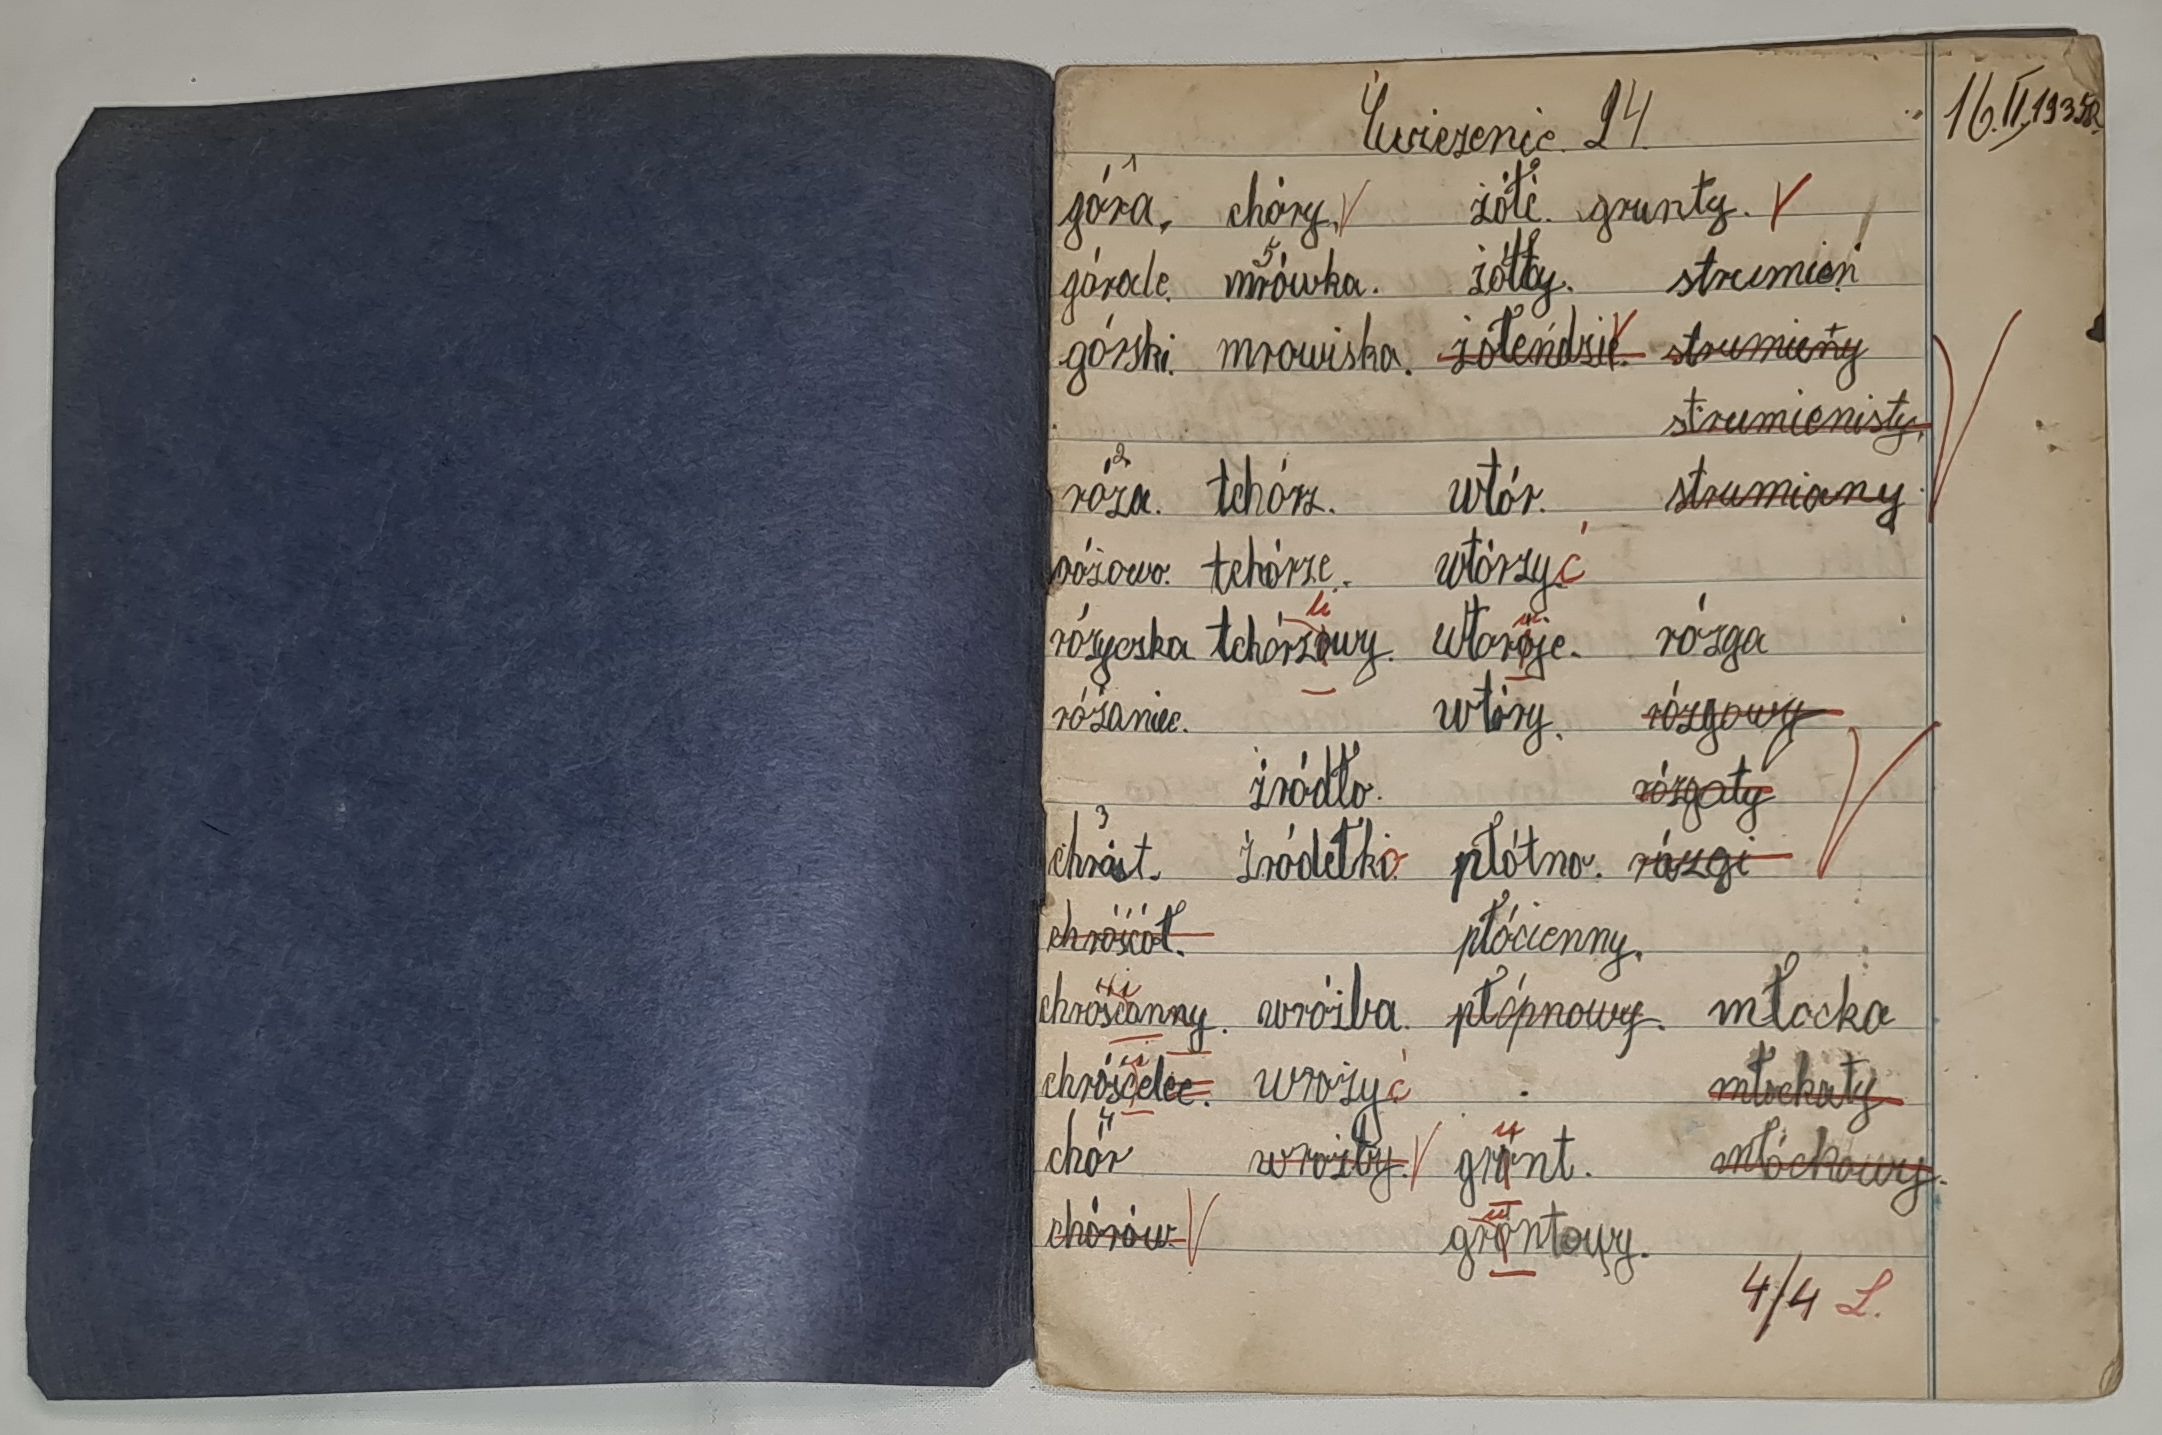 Ćwiczenie 24. 16.II.1935R.
góra. chóry. żółć. grunty.
górale. mrówka. żółty. strumień
górski. mrowiska. żołeńdzie. strumieńy
strumienisty.
róża. tchórz. wtór. strumiany
różowo. tchórze. wtórzyć
różyczka tchórzowy. wtoróje. rózga
różaniec. wtóry. rózgowy
źródło. rózgaty
chróst. źródełko płótno. rózgi
chróśćoł. płócienny.
chróśćanny. wróżba. płópnowy. młocka
chróśćelec. wrożyć młockaty
chór wrożby. grónt. młóckowy.
chórów gróntowy.
4/4 L.